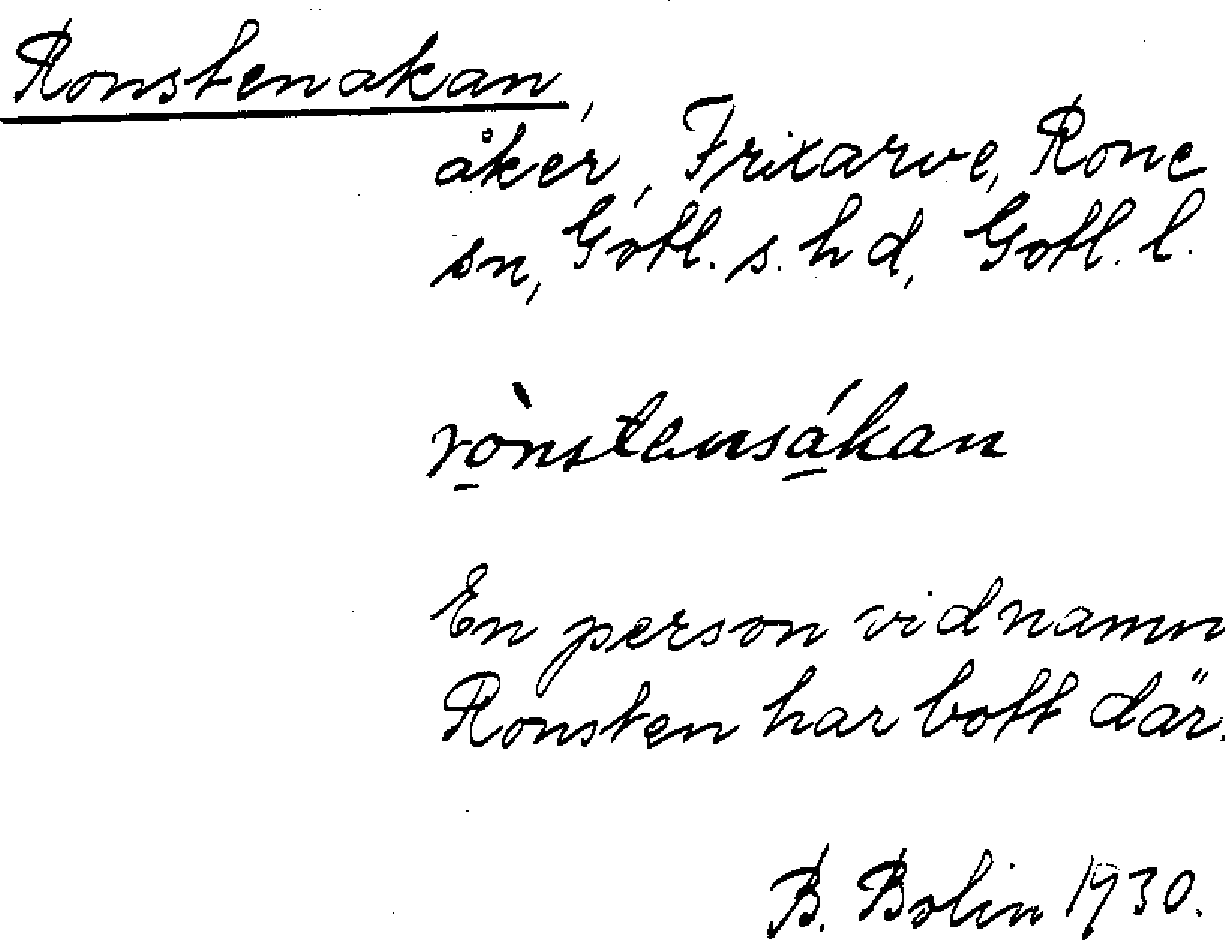 Ronstenakan,
åker, Frixarve, Rone
sn, Gotl. s. hd, Gotl. l.
rò̱nstensá̱kan
En person vid namn
Ronsten har bott där.
B. Bolin 1930.